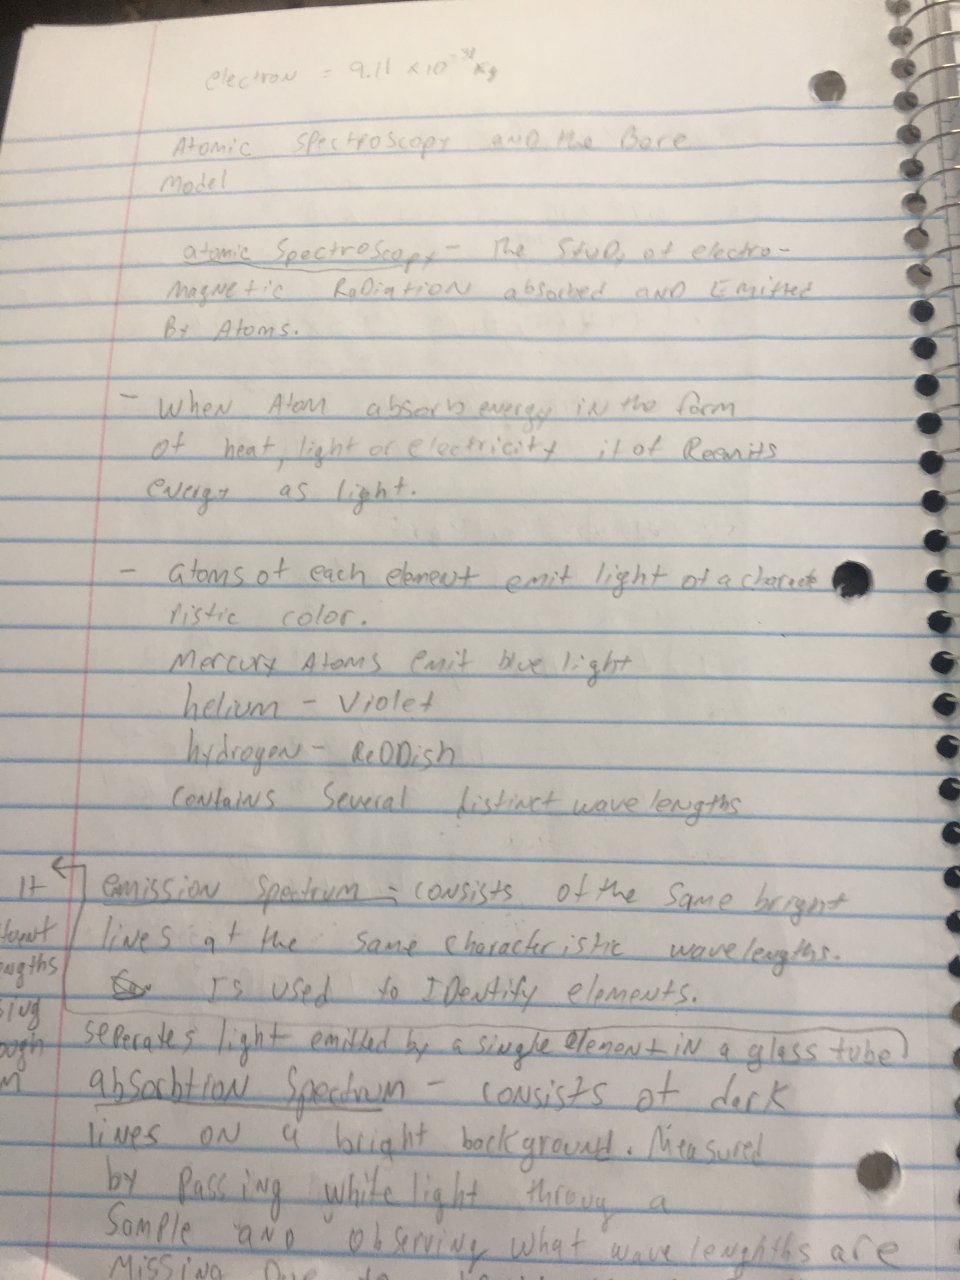 electron = 9.11 x10^-31 kg
Atomic Spectroscopy and the Bore
Model
atomic Spectroscopy - The Study of electro-
magnetic Radiation absorbed and Emitted
By Atoms.
- When Atom absorb energy in the form
of heat, light or electricity it of Reemits
energy as light.
- atoms of each element emit light of a characte
ristic color.
Mercury Atoms emit blue light
helium - Violet
hydrogen - ReDDish
contains Several distinct wave lengths
It
emission Spectrum - consists of the Same bright
lines at the same characteristic wavelengths.
ngths
Is used to IDentify elements.
seperates light emitted by a single element in a glass tube
ough
absorbtion Spectrum - consists of dark
lines on a bright background. Measured
by Passing white light throug a
Sample and observing what wave lenghths are
Missing Due to